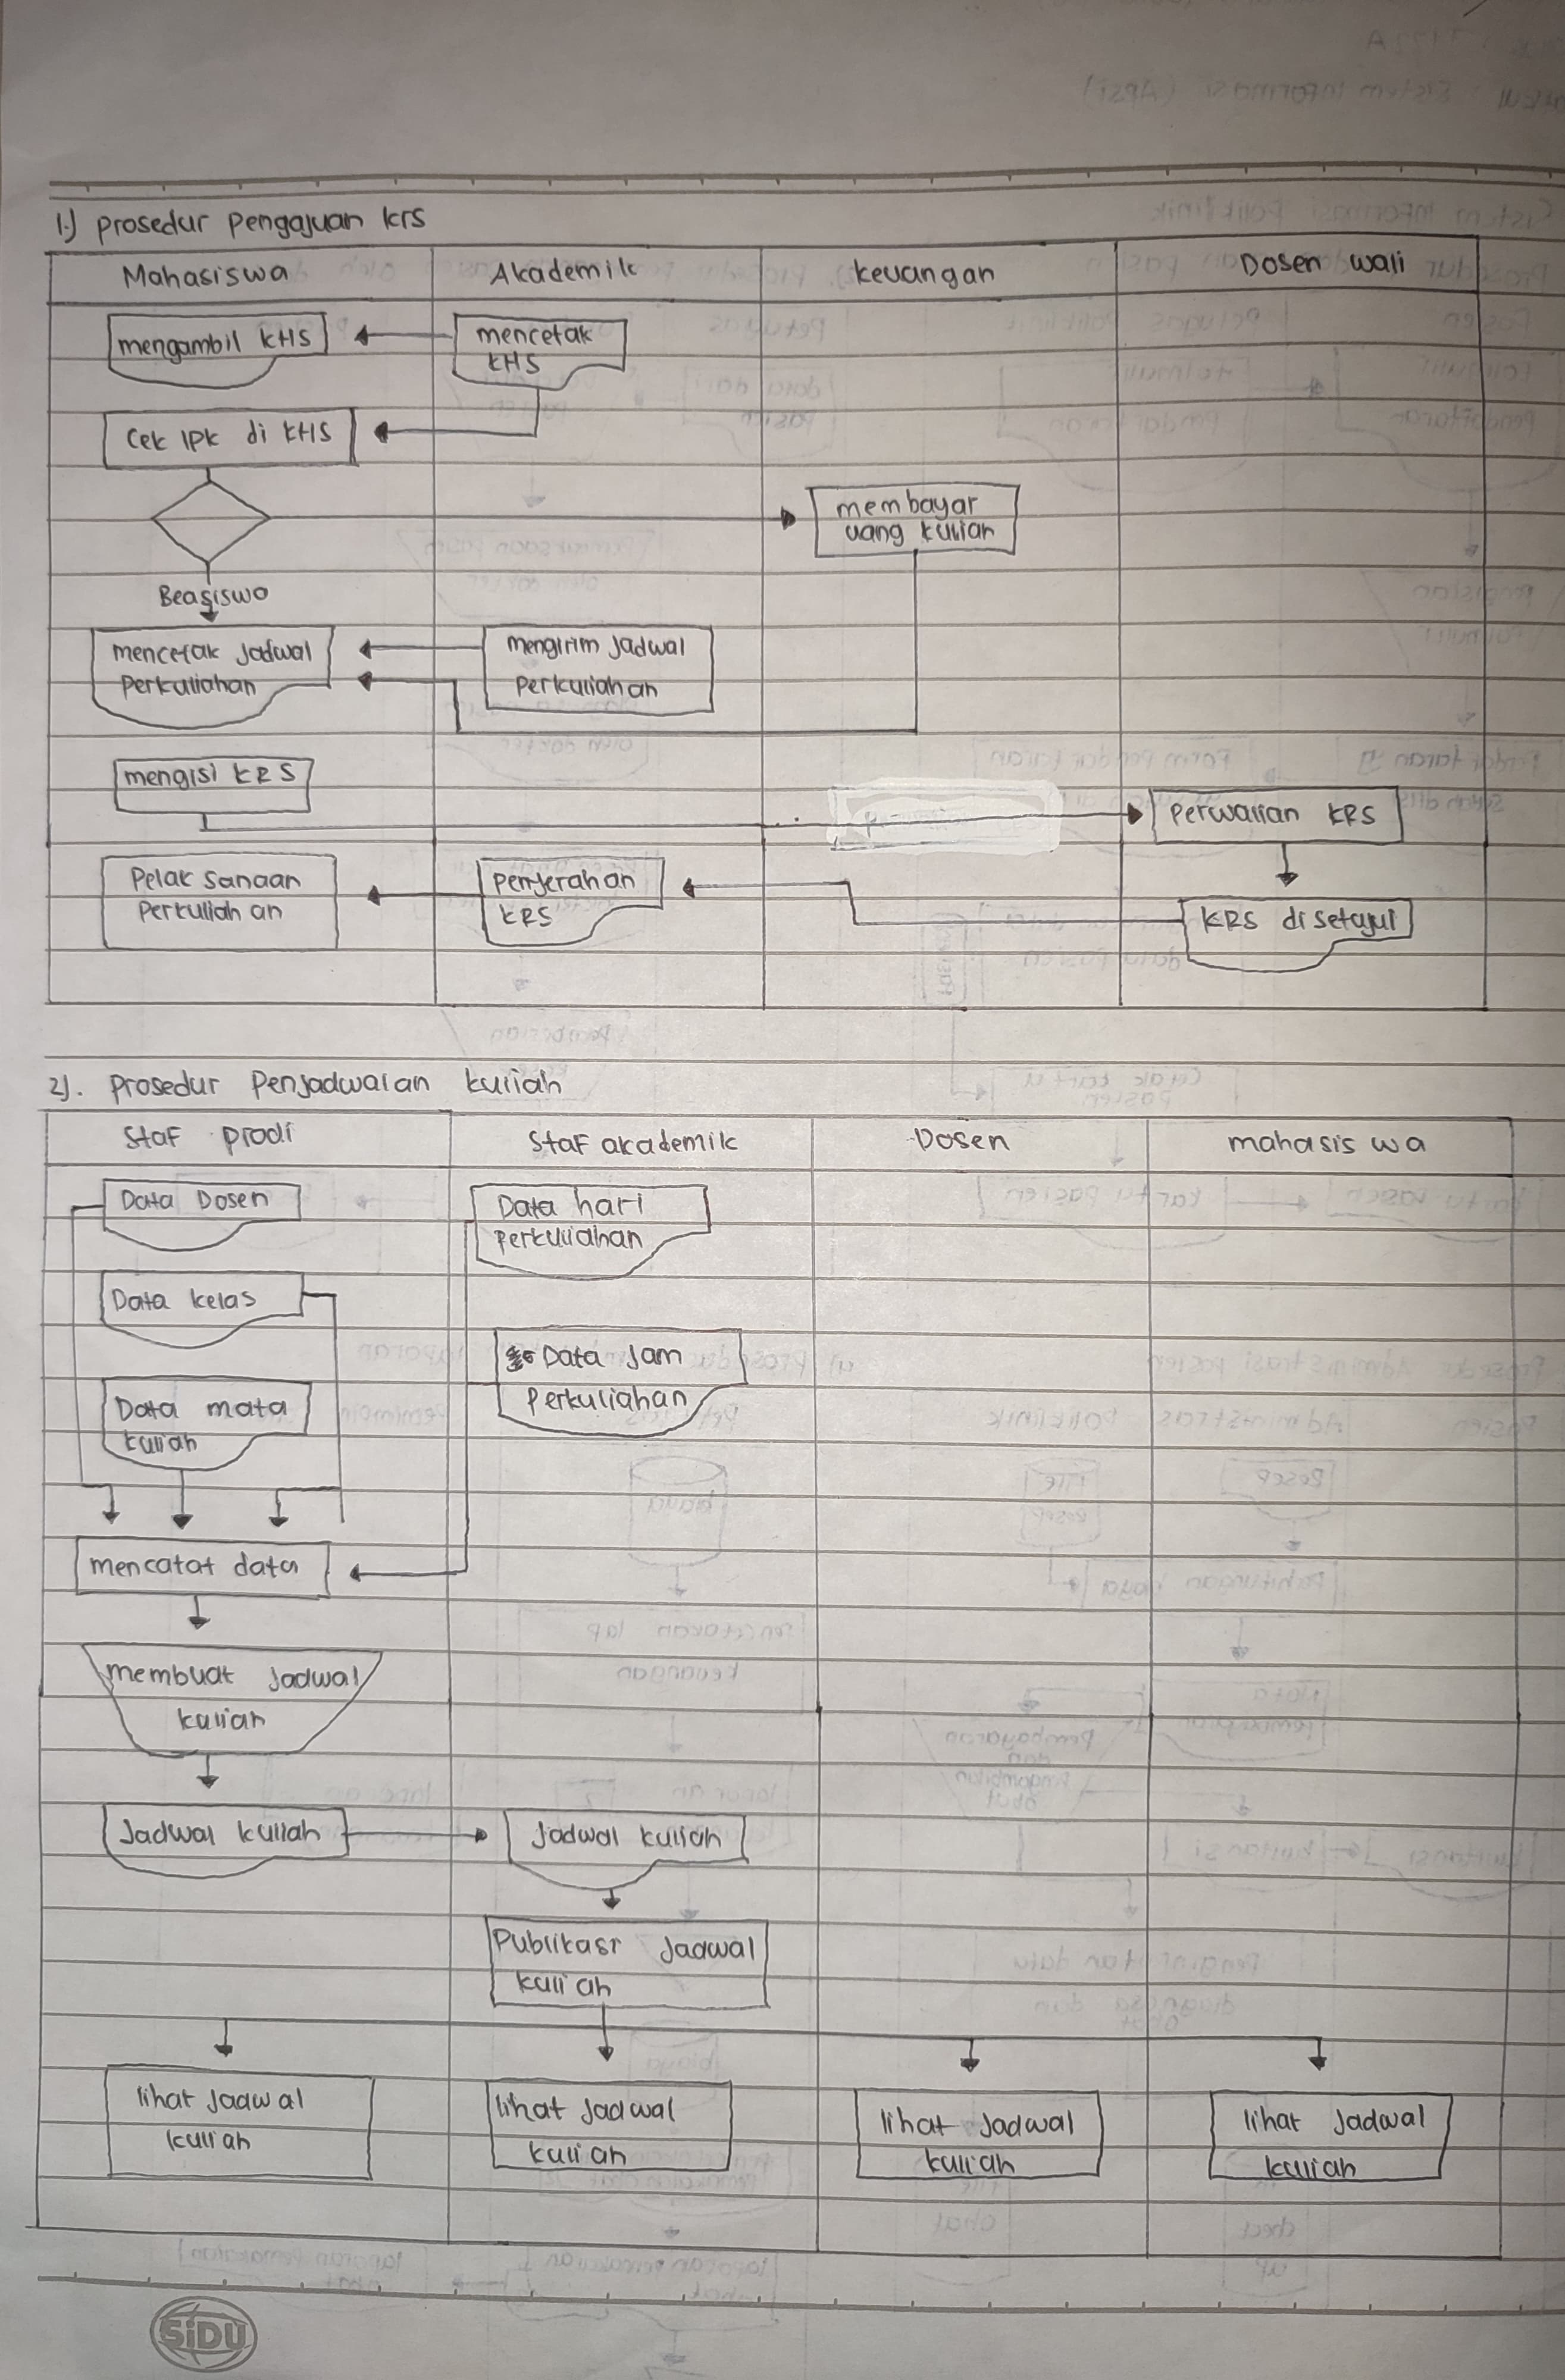 1.) Prosedur Pengajuan krs
Mahasiswa
Akademik
keuangan
Dosen wali
mengambil KHS
mencetak
KHS
Cek IPK di KHS
membayar
uang kuliah
Beasiswa
mencetak Jadwal
Perkuliahan
mengirim Jadwal
Perkuliahan
mengisi KRS
Perwalian KRS
Pelaksanaan
Perkuliahan
Penyerahan
KRS
KRS disetujui
2). Prosedur Penjadwalan kuliah
Staf prodi
Staf akademik
Dosen
mahasiswa
Data Dosen
Data hari
Perkuliahan
Data kelas
Data Jam
Perkuliahan
Data mata
kuliah
mencatat data
membuat Jadwal
kuliah
Jadwal kuliah
Jadwal kuliah
Publikasi Jadwal
kuliah
lihat Jadwal
kuliah
lihat Jadwal
kuliah
lihat Jadwal
kuliah
lihat Jadwal
kuliah
SiDU